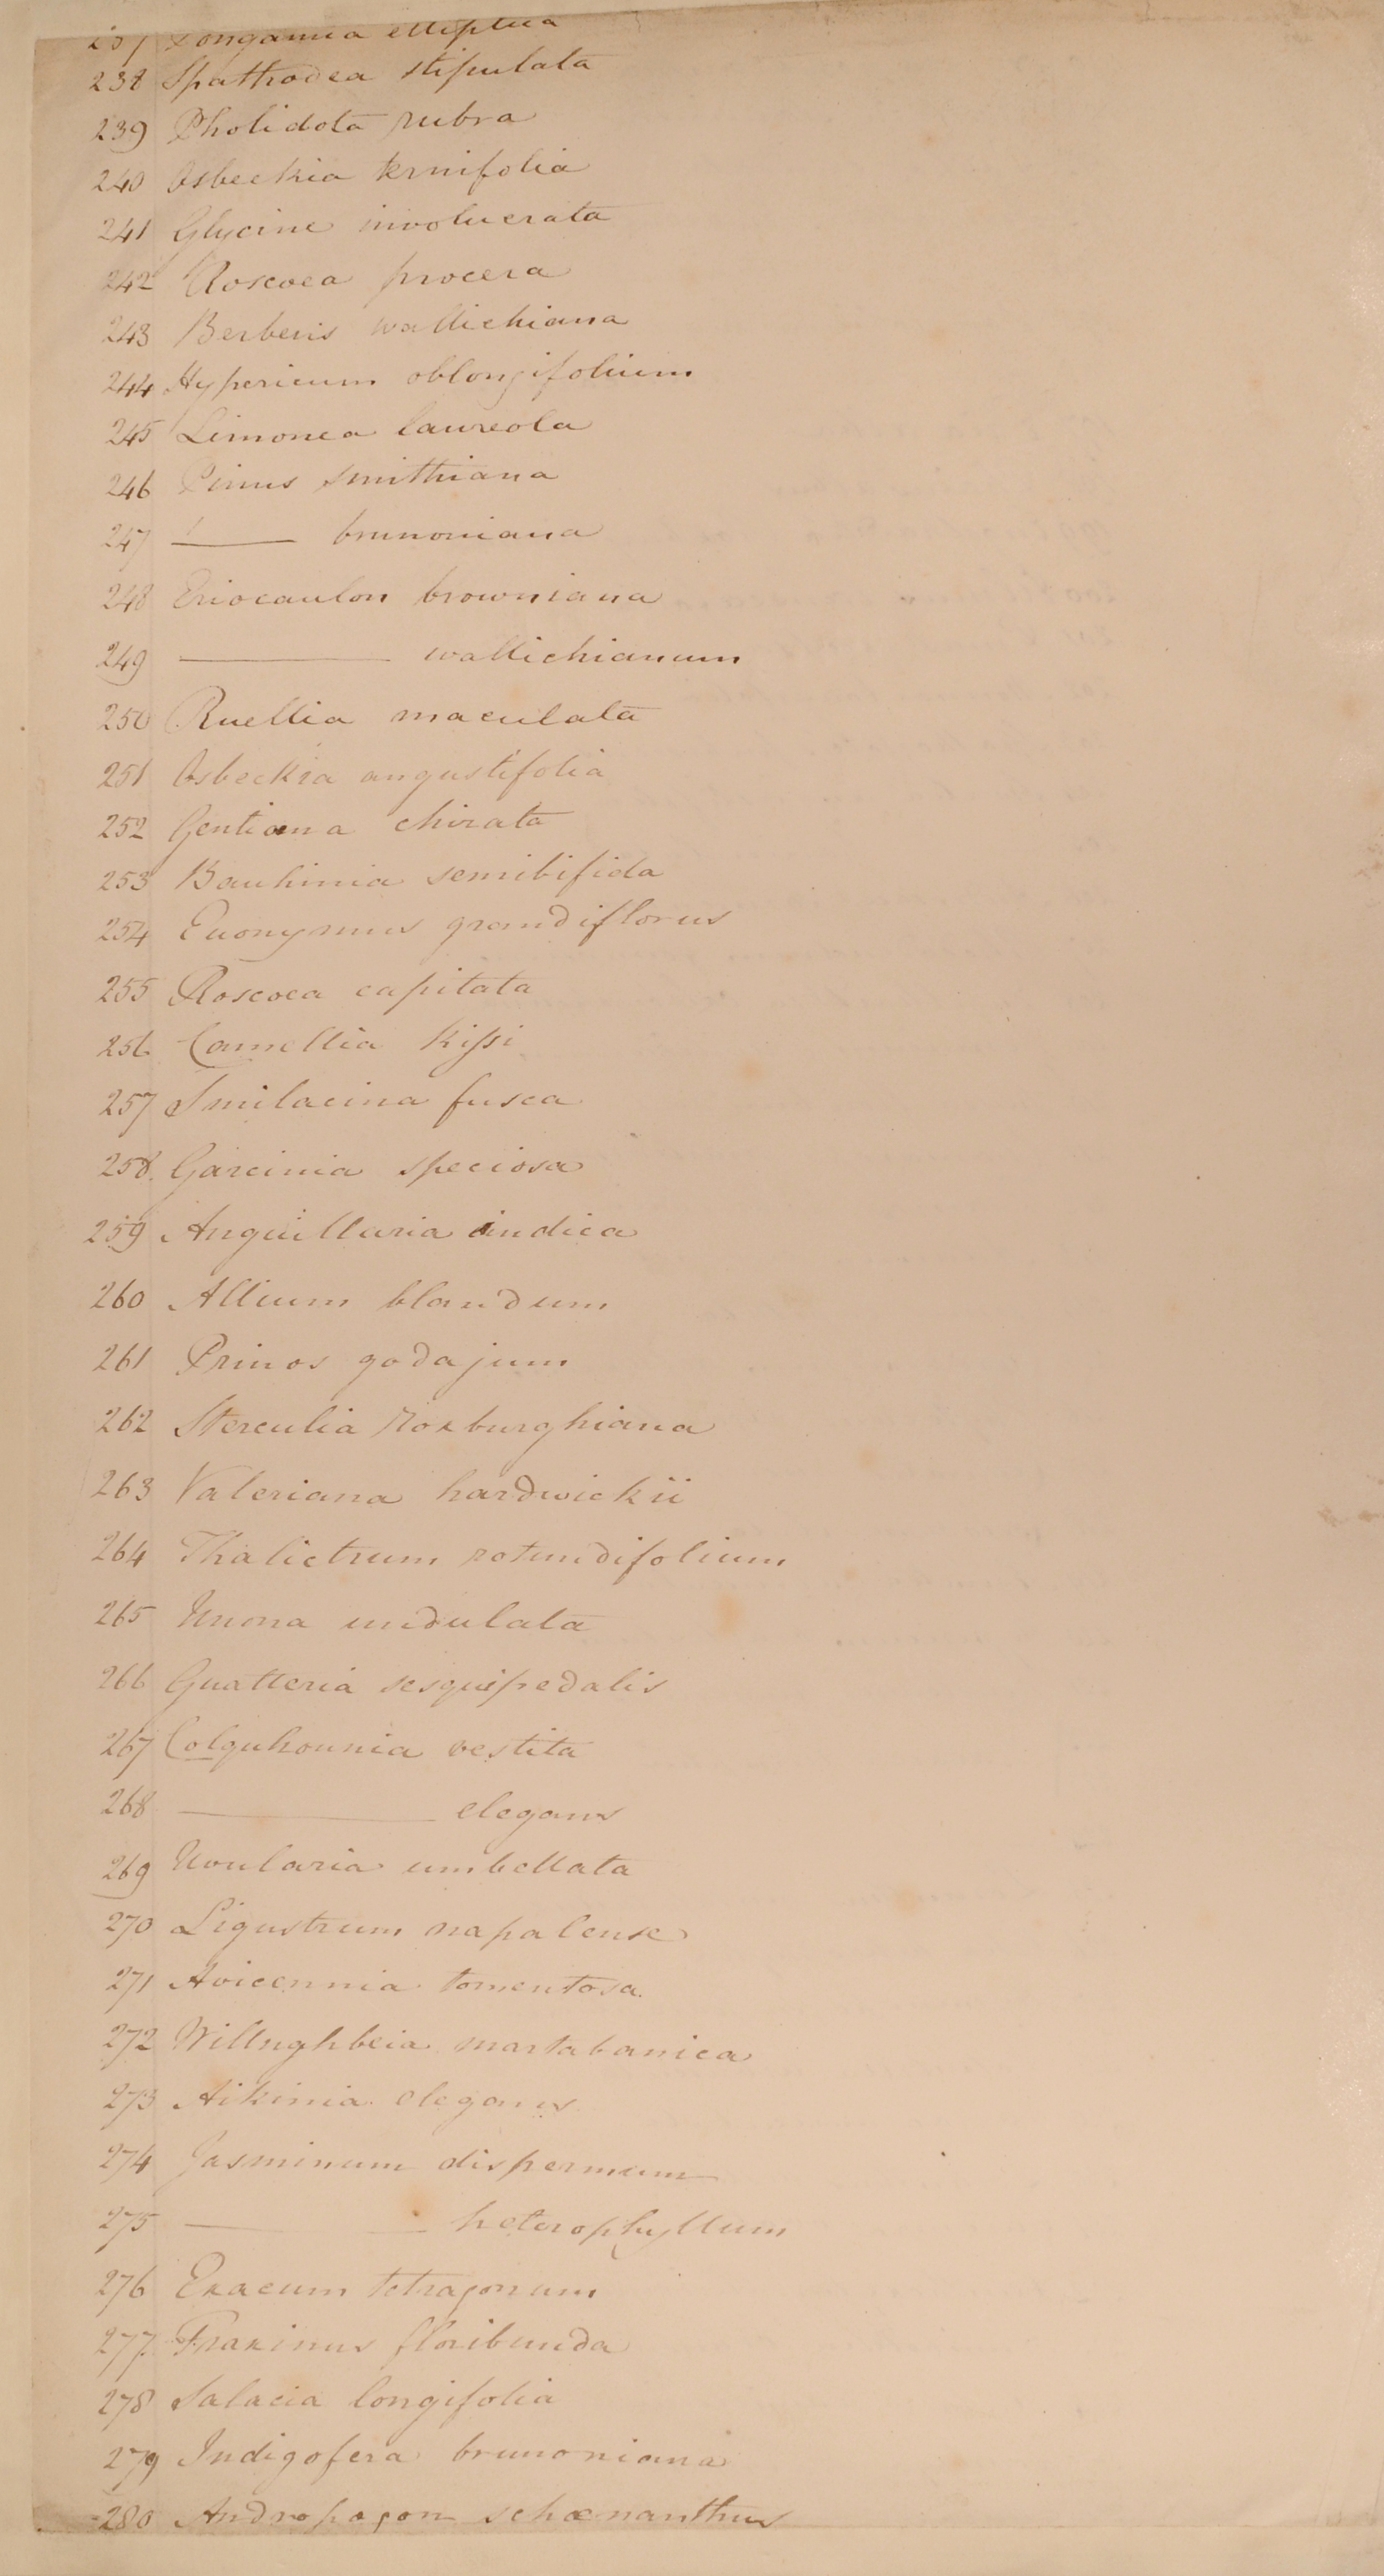 237 Pongamia elliptica
238 Spathodea stipulata
239 Pholidota rubra
240 Osbeckia ternifolia
241 Glycine involucrata
242 Roscoea procera
243 Berberis wallichiana
244 Hypericum oblongifolium
245 Limonea laureola
246 Pinus smithiana
247 —— brunoniana
248 Eriocaulon browniana
249 —— wallichianum
250 Ruellia maculata
251 Osbeckia angustifolia
252 Gentiana chirata
253 Bauhinia semibifida
254 Euonymus grandiflorus
255 Roscoea capitata
256 Camellia kissi
257 Smilacina fusca
258. Garcinia speciosa
259 Anguillaria indica
260 Allium blandum
261 Prinos godajum
262 Sterculia Roxburghiana
263 Valeriana hardwickii
264 Thalictrum rotundifolium
265 Unona undulata
266 Guatteria sesquipedalis
267 Colquhounia vestita
268 —— elegans
269 Uvularia umbellata
270 Ligustrum napalense
271 Avicennia tomentosa.
272 Willughbeia martabanica
273 Aikinia elegans
274 Jasminum dispermum
275 —— heterophyllum
276 Exacum tetragonum
277 Fraxinus floribunda
278 Salacia longifolia
279 Indigofera brunoniana
280 Andropogon schœnanthus